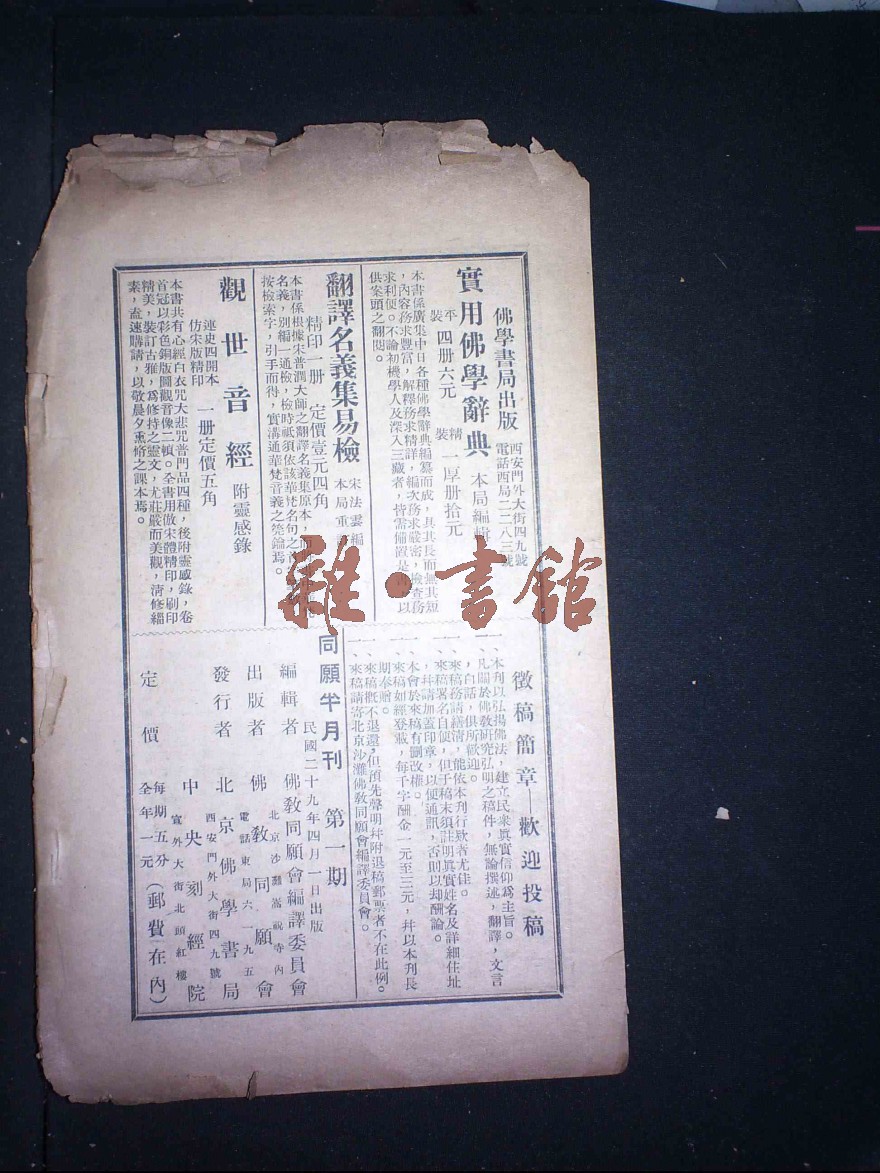 佛學書局出版
西安門外大街四九號
電話西局二二八三號
實用佛學辭典 本局編輯
平裝 四册六元 精裝 一厚册拾元
本書係廣集中日各種佛學辭典編纂而成，具其長而無其短
，內容務求豐富，解釋務求精詳，編次務求嚴密，檢查務
求利便。不論初機學人及深入三藏者，皆需備置是書，以
供案頭之翻閱。
翻譯名義集易檢
宋法雲編
本局重
精印一册 定價壹元四角
本書係根據宋普潤大師之翻譯名義集原本，而
名義，別編一通檢，檢時祗須依該華梵名句之首
按檢索字，引手而得，實溝通華梵音義之筦論焉。
觀世音經 附靈感錄
連史四開本
仿宋版精印 一册定價五角
本書共有心經白衣咒大悲咒普門品四種，後附靈感錄，卷
首冠以彩色銅版圖觀音像二幀。全書用倣宋體精印，刷印
精美，裝訂古雅，爲修持之靈文，尤莊嚴而美觀，清修緇
素，盍速購請，以敬晨夕熏脩之課本焉。
徵稿簡章—歡迎投稿
一、本刊以弘揚佛法，建立民衆眞實信仰爲主旨。
凡關於佛教研究弘明之稿件，無論撰述，翻譯，文言
，白話，俱所歡迎。
一、來稿務請繕清，能依本刊行款者尤佳。
來稿署名自便，但于稿末須註明眞實姓名及詳細住址
，幷請加蓋印章，以便通訊，否則以却酬論。
一、本會於來稿有刪改權。
來稿如經登載，每千字酬金一元至三元，幷以本刊長
期奉贈。
一、來稿槪不退還，但預先聲明幷附退稿郵票者不在此例。
一、來稿請寄北京沙灘佛教同願會編譯委員會。
同願半月刊 第一期
民國二十九年四月一日出版
編輯者 佛教同願會編譯委員會
北京沙灘嵩祝寺內
出版者 佛教同願會
電話東局六一九五
發行者 北京佛學書局
西安門外大街四九號
中央刻經院
宣外大街北頭紅樓
定價 每期五分
全年一元 （郵費在內）
雜·書館